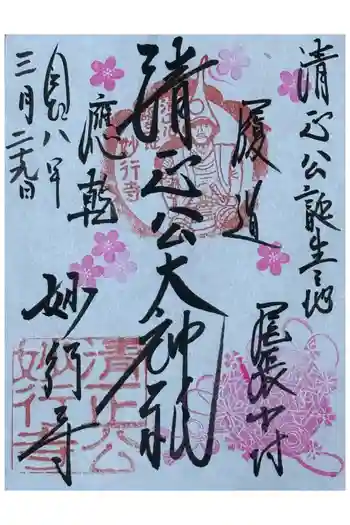 清正公誕生之地
尾張中村
履道
清正公大神祇
應乾
妙行寺
自昭八年
三月二十九日
妙行寺
清正公
妙行寺